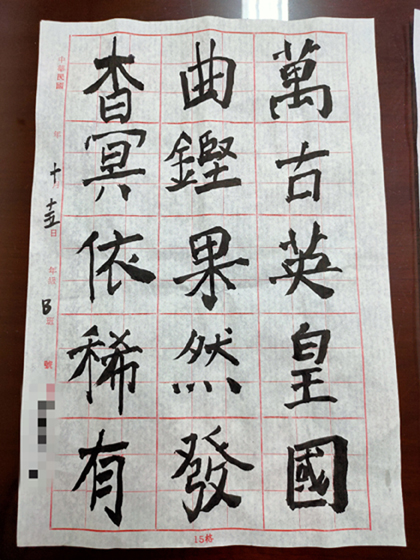 萬古英皇國
曲鏗果然發
杳冥依稀有
中華民國 年 十 十五日 年級 B 班 號
15格